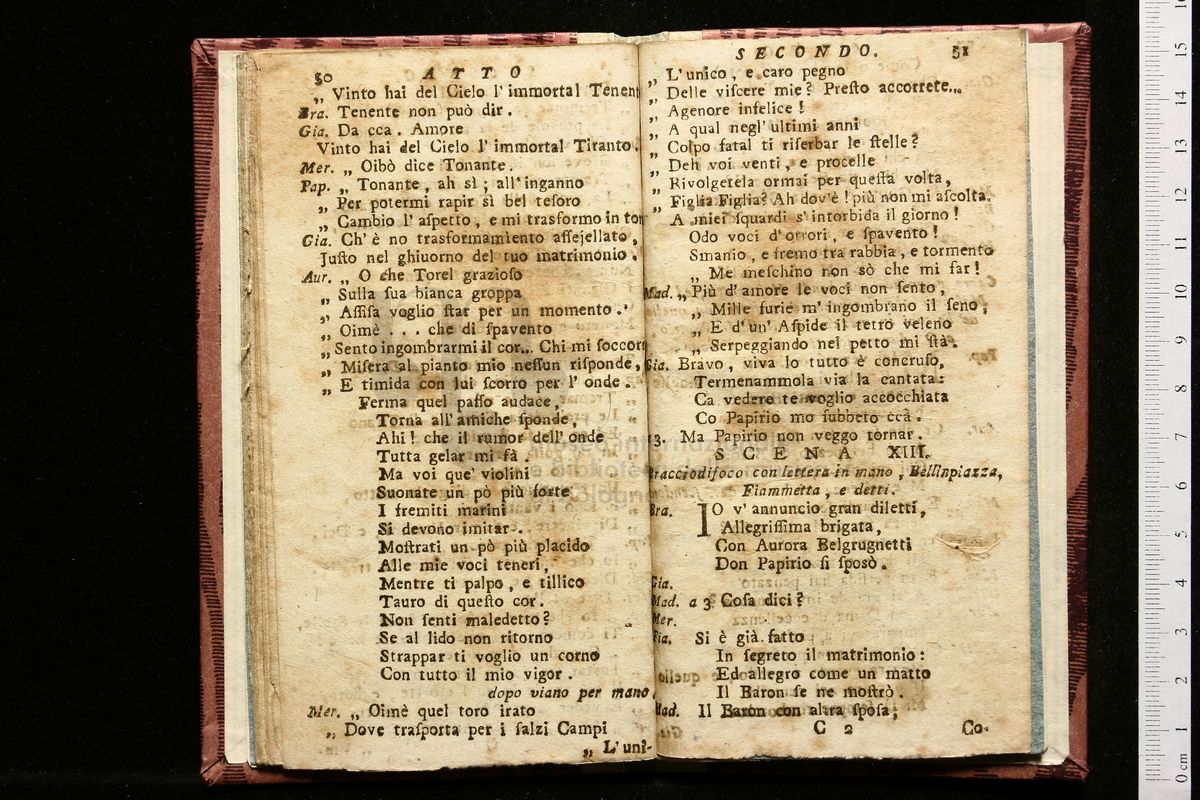 50 ATTO
„ Vinto hai del Cielo l'immortal Tenen
Bra. Tenente non può dir.
Gia. Da cca. Amore
Vinto hai del Cielo l'immortal Tiranto.
Mer. „ Oibò dice Tonante.
Pap. „ Tonante, ah sì; all'inganno
„ Per potermi rapir sì bel teſoro
„ Cambio l'aſpetto, e mi trasformo in tor
Gia. Ch'è no trasformamiento aſſejellato,
Juſto nel ghiuorno del tuo matrimonio.
Aur. „ O che Torel grazioſo
„ Sulla ſua bianca groppa
„ Aſſiſa voglio ſtar per un momento.
„ Oimè . . . che di ſpavento
„ Sento ingombrarmi il cor... Chi mi ſoccorr
„ Miſera al pianto mio neſſun riſponde,
„ E timida con lui ſcorro per l'onde.
Ferma quel paſſo audace,
Torna all'amiche ſponde,
Ahi! che il rumor dell'onde
Tutta gelar mi fà.
Ma voi que' violini
Suonate un pò più forte
I fremiti marini
Si devono imitar.
Moſtrati un pò più placido
Alle mie voci teneri,
Mentre ti palpo, e tillico
Tauro di queſto cor.
Non ſenti maledetto?
Se al lido non ritorno
Strappar ti voglio un corno
Con tutto il mio vigor.
dopo viano per mano.
Mer. „ Oimè quel toro irato
„ Dove traſporta per i ſalzi Campi
„ L'uni-
SECONDO. 51
„ L'unico, e caro pegno
„ Delle viſcere mie? Preſto accorrete...
„ Agenore infelice!
„ A qual negl'ultimi anni
„ Colpo fatal ti riſerbar le ſtelle?
„ Deh voi venti, e procelle
„ Rivolgetela ormai per queſta volta,
„ Figlia Figlia? Ah dov'è! più non mi aſcolta.
A miei ſquardi s'intorbida il giorno!
Odo voci d'orrori, e ſpavento!
Smanio, e fremo tra rabbia, e tormento
„ Me meſchino non sò che mi far!
Mad. „ Più d'amore le voci non ſento,
„ Mille furie m'ingombrano il ſeno,
„ E d'un'Aſpide il tetro veleno
„ Serpeggiando nel petto mi ſtà.
Gia. Bravo, viva lo tutto è concruſo,
Termenammola via la cantata:
Ca vedere te voglio accocchiata
Co Papirio mo ſubbeto ccà.
3. Ma Papirio non veggo tornar.
SCENA XIII.
Bracciodifoco con lettera in mano, Bellinpiazza,
Fiammetta, e detti.
Bra. IO v'annuncio gran diletti,
Allegriſſima brigata,
Con Aurora Belgrugnetti
Don Papirio ſi ſposò.
Gia.
Mad. a 3 Coſa dici?
Mer.
Fia. Si è già fatto
In ſegreto il matrimonio:
Ed allegro come un matto
Il Baron ſe ne moſtrò.
Mad. Il Baron con altra ſpoſa;
C 2 Co-